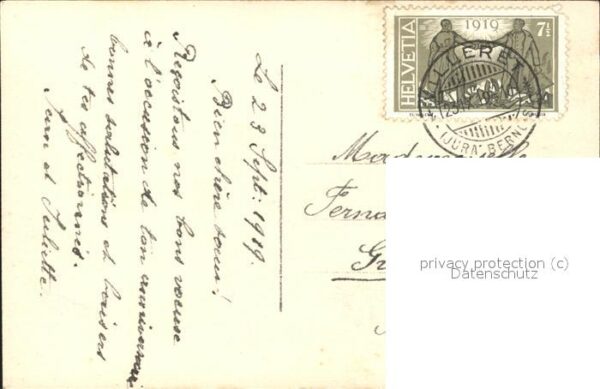 Le 23 Sept: 1919.
Bien chère sœur!
Reçois tous nos bons voeuxe
à l'occasion de ton anniversaire
bonnes salutations et baisers
de tes affectionnés.
Jean et Juliette.
1919
7½
HELVETIA
VILLERET
(JURA BERNOIS)
Fern
privacy protection (c)
Datenschutz